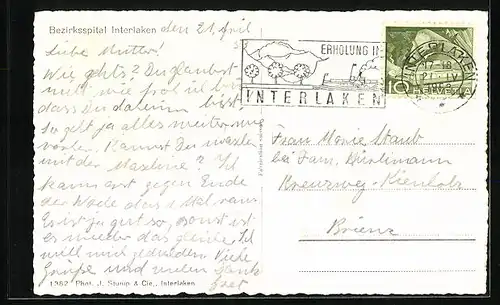 Bezirksspital Interlaken den 21. April
Liebe Mutter!
Wie gehts? Du glaubst
nicht, wie froh ich bin
dass Du daheim bist.
So geht ja alles weiter wie
vorher. Kannst Du waschen
mit der Maschine? Ich
kann erst gegen Ende
der Woche das 1. Mal raus
Es ist ja gut so, sonst ist
es wieder das gleiche. Ich
will mich gedulden. Viele
Grüsse und vielen Dank
1362 Phot. J. Stump & Cie., Interlaken
ERHOLUNG IN
INTERLAKEN
INTERLAKEN
17-18
21. IV
10
HELVETIA
Frau Marie Staub
bei Fam.
Kreuzweg-Kienholz
Brienz